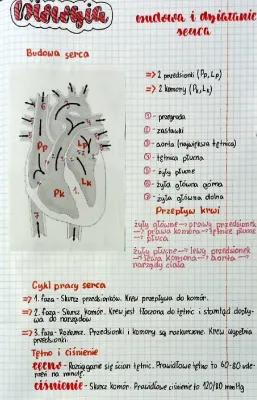 Biologia
budowa i działanie
serca
Budowa serca
=> 2 przedsionki (Pp, Lp)
=> 2 komory (Pk, Lk)
Pp
Lp
Pk
Lk
① - przegroda
② - zastawki
③ - aorta (największa tętnica)
④ - tętnica płucna
⑤ - żyły płucne
⑥ - żyła główna górna
⑦ - żyła główna dolna
Przepływ krwi
żyły główne → prawy przedsionek
→ prawa komora → tętnice płucne
→ płuca
żyły płucne → lewy przedsionek
→ lewa komora → aorta →
narządy ciała
Cykl pracy serca
=> 1. faza - Skurcz przedsionków. Krew przepływa do komór.
=> 2. faza - Skurcz komór. Krew jest tłoczona do tętnic i stamtąd dopły-
wa do narządów
=> 3. faza - Rozkurcz. Przedsionki i komory są rozkurczone. Krew wypełnia
przedsionki.
Tętno i ciśnienie
tętno - Rozciąganie się ścian tętnic. Prawidłowe tętno to 60-80 ude-
rzeń na minutę.
ciśnienie - Skurcz komór. Prawidłowe ciśnienie to 120/80 mmHg